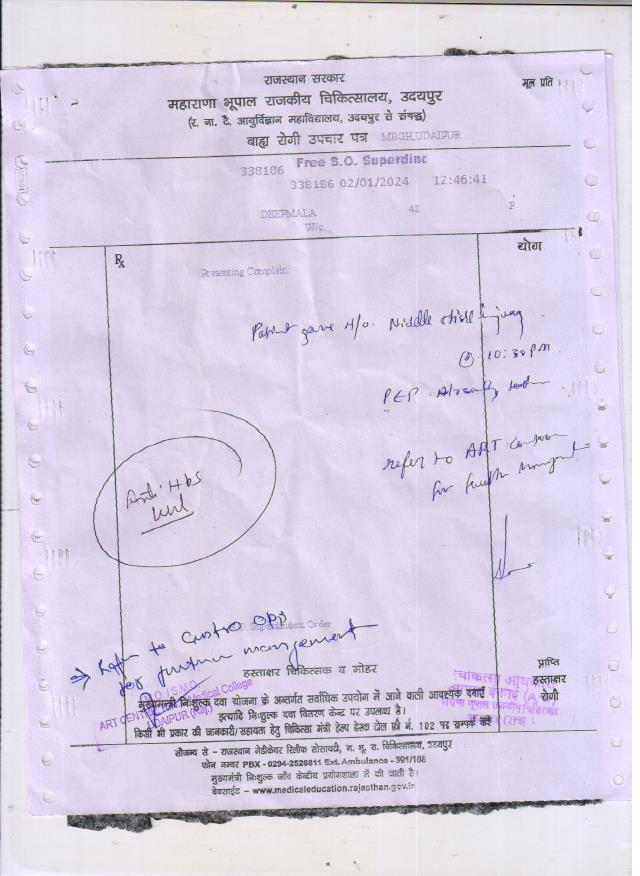 राजस्थान सरकार
मूल प्रति
महाराणा भूपाल राजकीय चिकित्सालय, उदयपुर
(र. ना. टै. आयुर्विज्ञान महाविद्यालय, उदयपुर से संबद्ध)
बाह्य रोगी उपचार पत्र MBGH,UDAIPUR
338186 Free S.O. Superdind
338186 02/01/2024 12:46:41
DEEPMALA 42 F
W/o
Rx
योग
Presenting Complain:
Patient gave H/o. Niddle stick injury
@ 10:30 PM
PEP. Already
refer to ART
for further
Anti Hbs
Superintendent Order
→ Refer to Gastro OPD
for further management
हस्ताक्षर चिकित्सक व मोहर
प्राप्ति
हस्ताक्षर
रोगी
ART CENTRE Medical College
UDAIPUR (Raj.)
मुख्यमंत्री निःशुल्क दवा योजना के अन्तर्गत सर्वाधिक उपयोग में आने वाली आवश्यक दवाएँ
इत्यादि निःशुल्क दवा वितरण केन्द्र पर उपलब्ध है।
किसी भी प्रकार की जानकारी/सहायता हेतु चिकित्सा मंत्री हेल्प डेस्क टोल फ्री नं. 102 पर सम्पर्क करें
सौजन्य से - राजस्थान मेडीकेयर रिलीफ सोसायटी, म. भू. रा. चिकित्सालय, उदयपुर
फोन नम्बर PBX - 0294-2528811 Ext. Ambulance - 391/108
मुख्यमंत्री निःशुल्क जाँच केन्द्रीय प्रयोगशाला में की जाती है।
वेबसाईट - www.medicaleducation.rajasthan.gov.in